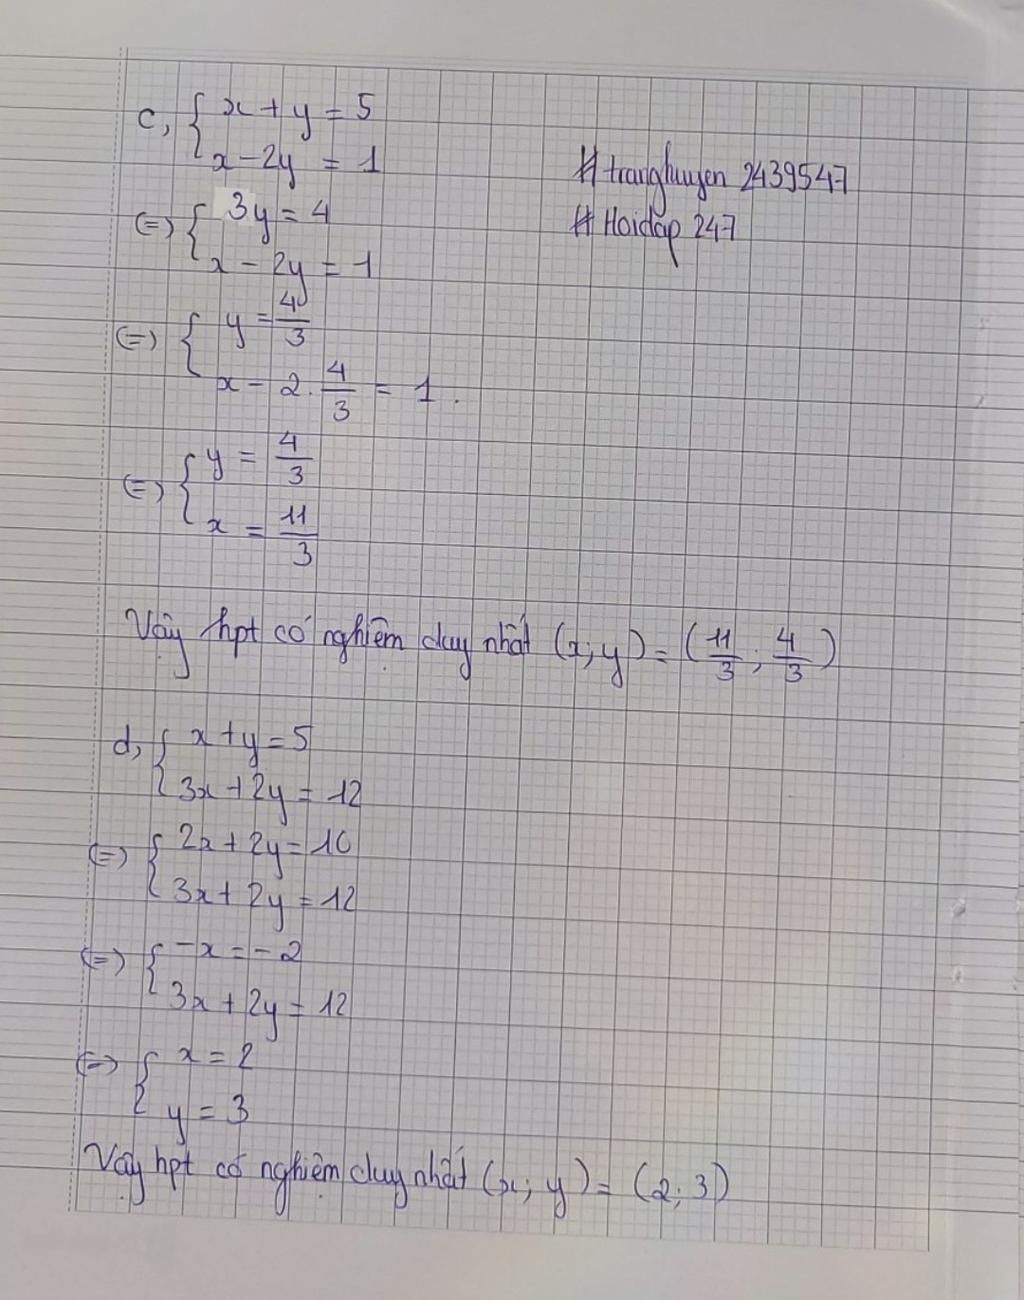 c, { x + y = 5
x - 2y = 1
# tranghuyen 2439547
# Hoidap 247
(=) { 3y = 4
x - 2y = 1
(=) { y = 4/3
x - 2. 4/3 = 1.
(=) { y = 4/3
x = 11/3
Vậy hpt có nghiệm duy nhất (x; y) = (11/3; 4/3)
d, { x + y = 5
3x + 2y = 12
(=) { 2x + 2y = 10
3x + 2y = 12
(=) { -x = -2
3x + 2y = 12
(=) { x = 2
y = 3
Vậy hpt có nghiệm duy nhất (x; y) = (2; 3)